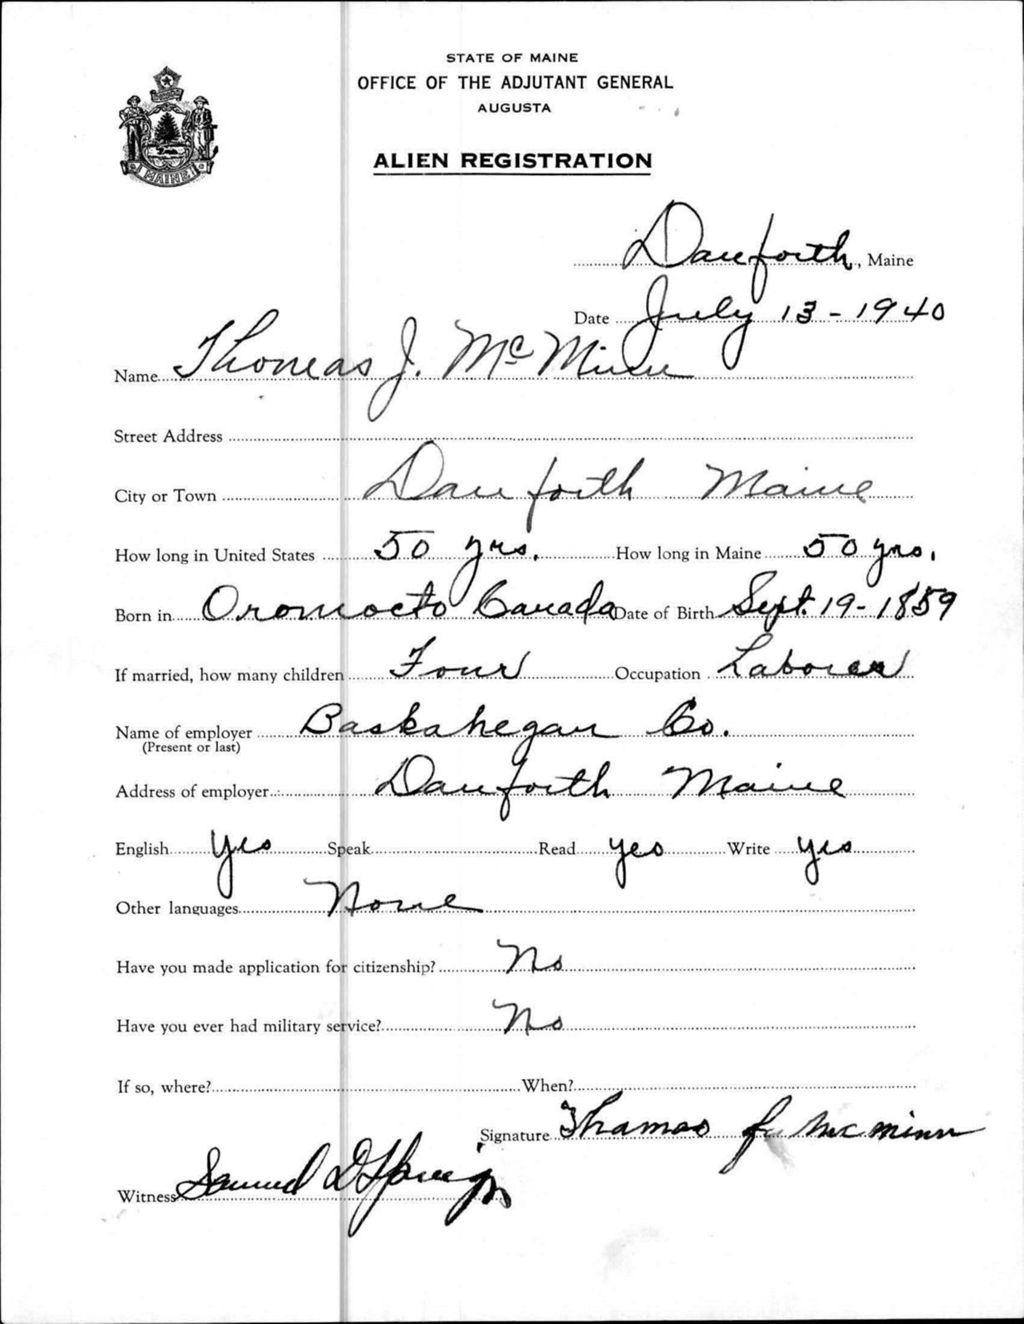 STATE OF MAINE
OFFICE OF THE ADJUTANT GENERAL
AUGUSTA
ALIEN REGISTRATION
MAINE
Danforth, Maine
Date July 13 - 1940
Name Thomas J. McMinn
Street Address
City or Town Danforth Maine
How long in United States 50 yrs. How long in Maine 50 yrs.
Born in Oromocto Canada Date of Birth Sept. 19 - 1859
If married, how many children Four Occupation Laborer
Name of employer Baskahegan Co.
(Present or last)
Address of employer Danforth Maine
English Yes Speak Read yes Write yes
Other languages None
Have you made application for citizenship? No
Have you ever had military service? No
If so, where? When?
Signature Thomas J McMinn
Witness Samuel D